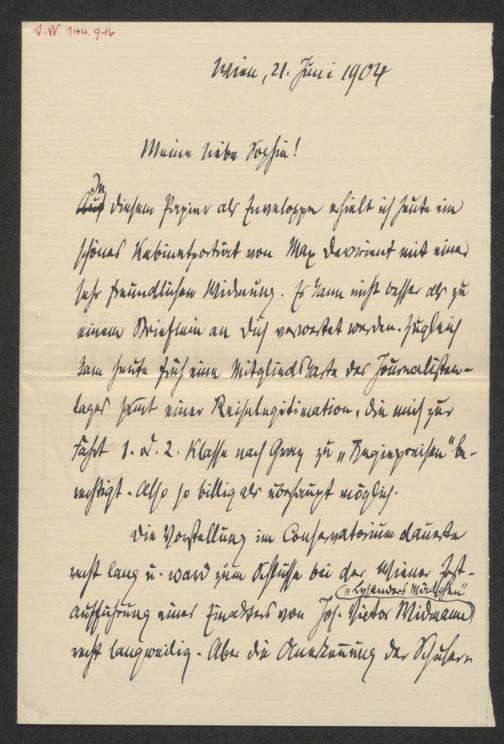 Wien, 21. Juni 1904
Meine liebe Sophie!
In
Auf diesem Papier als Enveloppe erhielt ich heute ein
schönes Kabinetportrait von Max Devrient mit einer
sehr freundlichen Widmung. Es kann nicht besser als zu
einem Brieflein an Dich verwertet werden. Zugleich
kam heute früh eine Mitgliedskarte des Journalisten-
tages samt einer Reiselegitimation, die mich zur
Fahrt 1. od. 2. Klasse nach Graz zu „Regiepreisen" be-
rechtigt. Also so billig als überhaupt möglich.
Die Vorstellung im Conservatorium dauerte
recht lang u. ward zum Schlusse bei der Wiener Erst-
(„Lysanders Mädchen"
aufführung eines Einakters von Jos. Victor Widmann)
recht langweilig. Aber die Anerkennung der Schüler